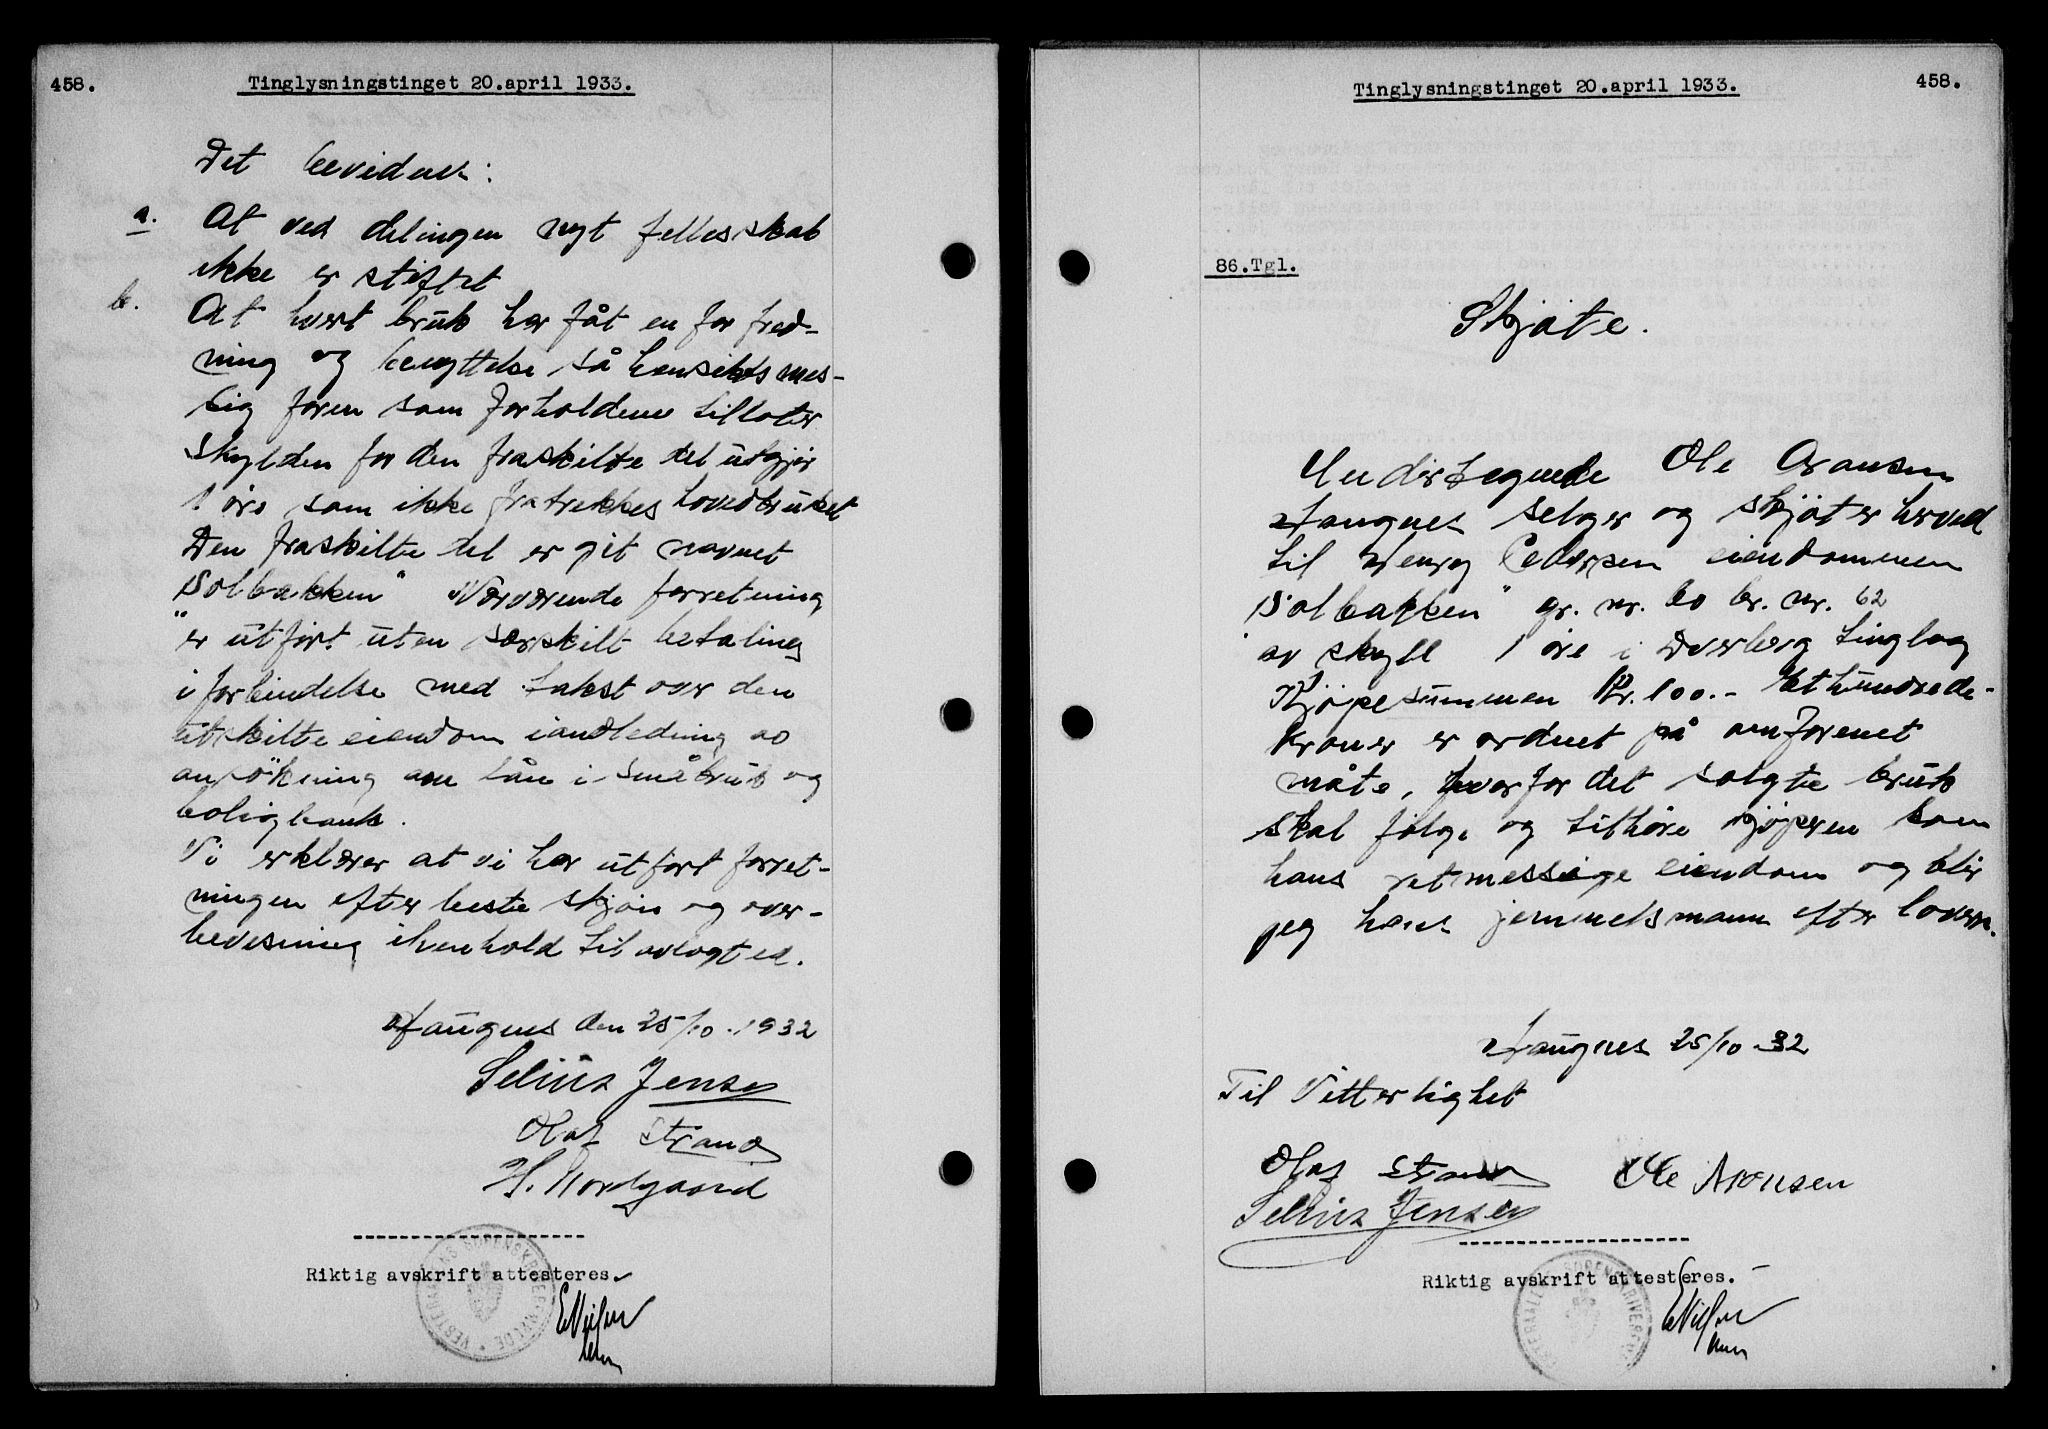 458.
Tinglysningstinget 20.april 1933.
Det bevidnes:
a. At ved delingen nyt fellesskab
ikke er stiftet
b. At hvert bruk har fåt en for fred-
ning og benyttelse så hensiktsmes-
sig form som forholdene tillater
Skylden for den fraskilte del utgjør
1 øre som ikke fratrekkes hovedbruket
Den fraskilte del er git navnet
"Solbakken" Nærværende forretning
er utført uten særskilt betaling
i forbindelse med takst over den
utskilte eiendom i anledning av
ansøkning om lån i småbruk og
boligbank.
Vi erklærer at vi har utført forret-
ningen efter beste skjøn og over-
bevisning i henhold til avlagt ed.
Haugnes den 25/10. 1932
Selius Jensen
Olaf Strand
H. Nordgaard
Riktig avskrift attesteres.
VESTERAALENS SORENSKRIVEREMBEDE
458.
Tinglysningstinget 20.april 1933.
86.Tgl.
Skjøte.
Undertegnede Ole Aronsen
Haugnes selger og skjøter herved
til Henry Pedersen eiendommen
"Solbakken" gr. nr. 60 br. nr. 62
av skyll 1 øre i Dverberg tinglag
Kjøpesummen Kr. 100.- Ethundrede-
kroner er ordnet på omforenet
måte, hvorfor det solgte bruk
skal følge og tilhøre kjøperen som
hans retmessige eiendom og blir
jeg hans hjemmelsmann efter loven.
Haugnes 25/10 32
Til Vitterlighet
Olaf Strand Ole Aronsen
Selius Jensen
Riktig avskrift attesteres.